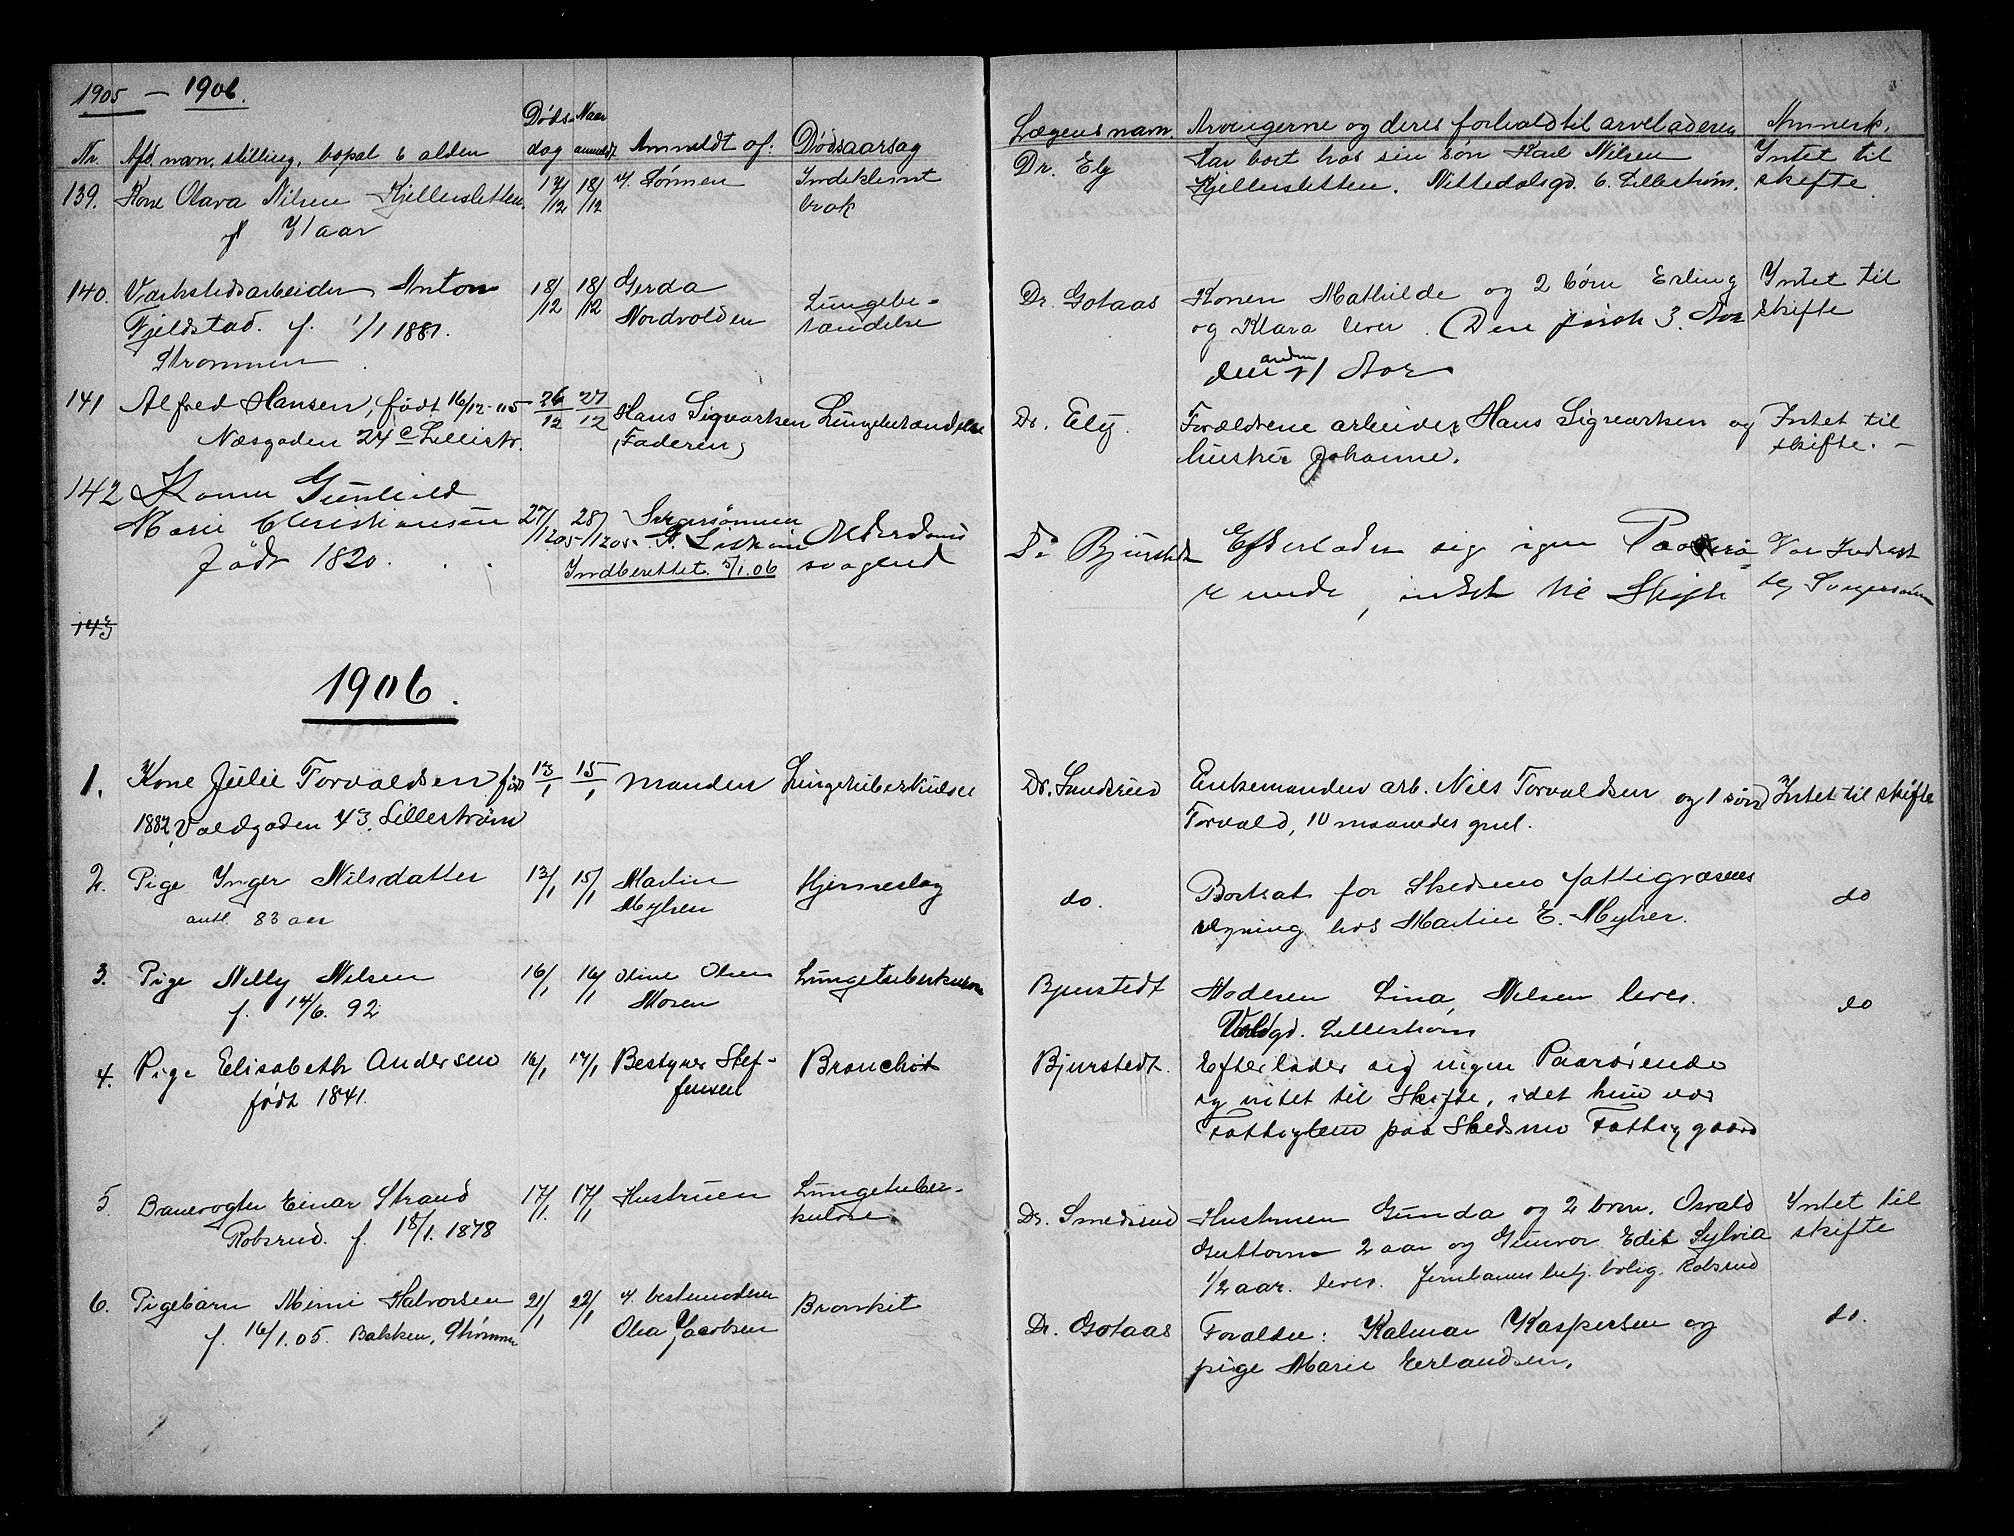 1905 – 1906.
Nr. Afd. navn, stilling, bopæl & alden Døds- dag Naar anmeldt Anmeldt af: Dødsaarsag Lægens navn. Arvingerne og deres forhold til arveladeren Anmerk.
139. Kone Olava Nilsen Kjellersletten. 17/12 18/12 v. Sønnen Indeklemt Dr. Ely Har boet hos sin søn Karl Nilsen Intet til
71 aar brok Kjellersletten. Nittedalsgd. 6. Lillestrøm. skifte
140. Værkstedsarbeider Anton 18/12 18/12 Gerda Lungebe- Dr. Gotaas Konen Mathilde og 2 børn Erling Intet til
Fjeldstad. f. 1/1 1881. Nordvolden tændelse og Klara lever. (Den første 3. Aar skifte
Strømmen den anden 1 Aar
141 Alfred Hansen, født 16/12-05 26/12 27/12 Hans Sigvartsen Lungebetændelse Dr. Ely. Forældrene arbeider Hans Sigvartsen og Intet til
Næsgaden 24c Lillestr. (Faderen) hustru Johanne. skifte. –
142 Konen Gunhild
Marie Christiansen 27/12 05 28/12 05 Svigersønnen Alderdoms Dr Bjurstedt Efterlader sig igen Paarø-
født 1820. Indberettet 5/1.06 svaghed rende, intet til Skifte
143
1906.
1. Kone Julie Torvaldsen født 13/1 15/1 Manden Lungetuberkulose Dr. Smedsrud Enkemanden arb. Nils Torvaldsen og 1 søn Intet til skifte
1882, Voldgaden 43. Lillestrøm Torvald, 10 maaneder gml.
2. Pige Inger Nilsdatter 13/1 15/1 Martin Hjerneslag do. Bortsat for Skedsmo fattigvæsens do
antl. 83 aar Myhrer regning hos Martin E. Myhrer.
3. Pige Nelly Nilsen 16/1 16/1 Oline Olsen Lungetuberkulose Bjurstedt Moderen Lina Nilsen lever. do
f. 14/6. 92 Mosen Voldgd. Lillestrøm
4. Pige Elisabeth Andersen 16/1 17/1 Bestyrer Stef- Bronchit Bjurstedt. Efterlader sig ingen Paarørende
født 1841. fensen og intet til Skifte, idet hun var
Fattiglem paa Skedsmo Fattiggaard
5. Banevogter Einar Strand 17/1. 17/1 Hustruen Lungetuber- Dr. Smedsrud Hustruen Gunda og 2 børn. Osvald Intet til
Robsrud. f. 18/1. 1878 kulose. Guttorm 2 aar og Gunvor Edit Sylvia skifte
1/2 aar. lever. Jernbanens betj. bolig. Robsrud
6. Pigebarn Mimi Halvorsen 21/1 22/1 v. bestemoderen Bronkit Dr. Gotaas Forældre: Kalmar Kaspersen og do.
f. 16/1.05. Bakken, Strømmen Olea Jacobsen pige Marie Erlandsen.